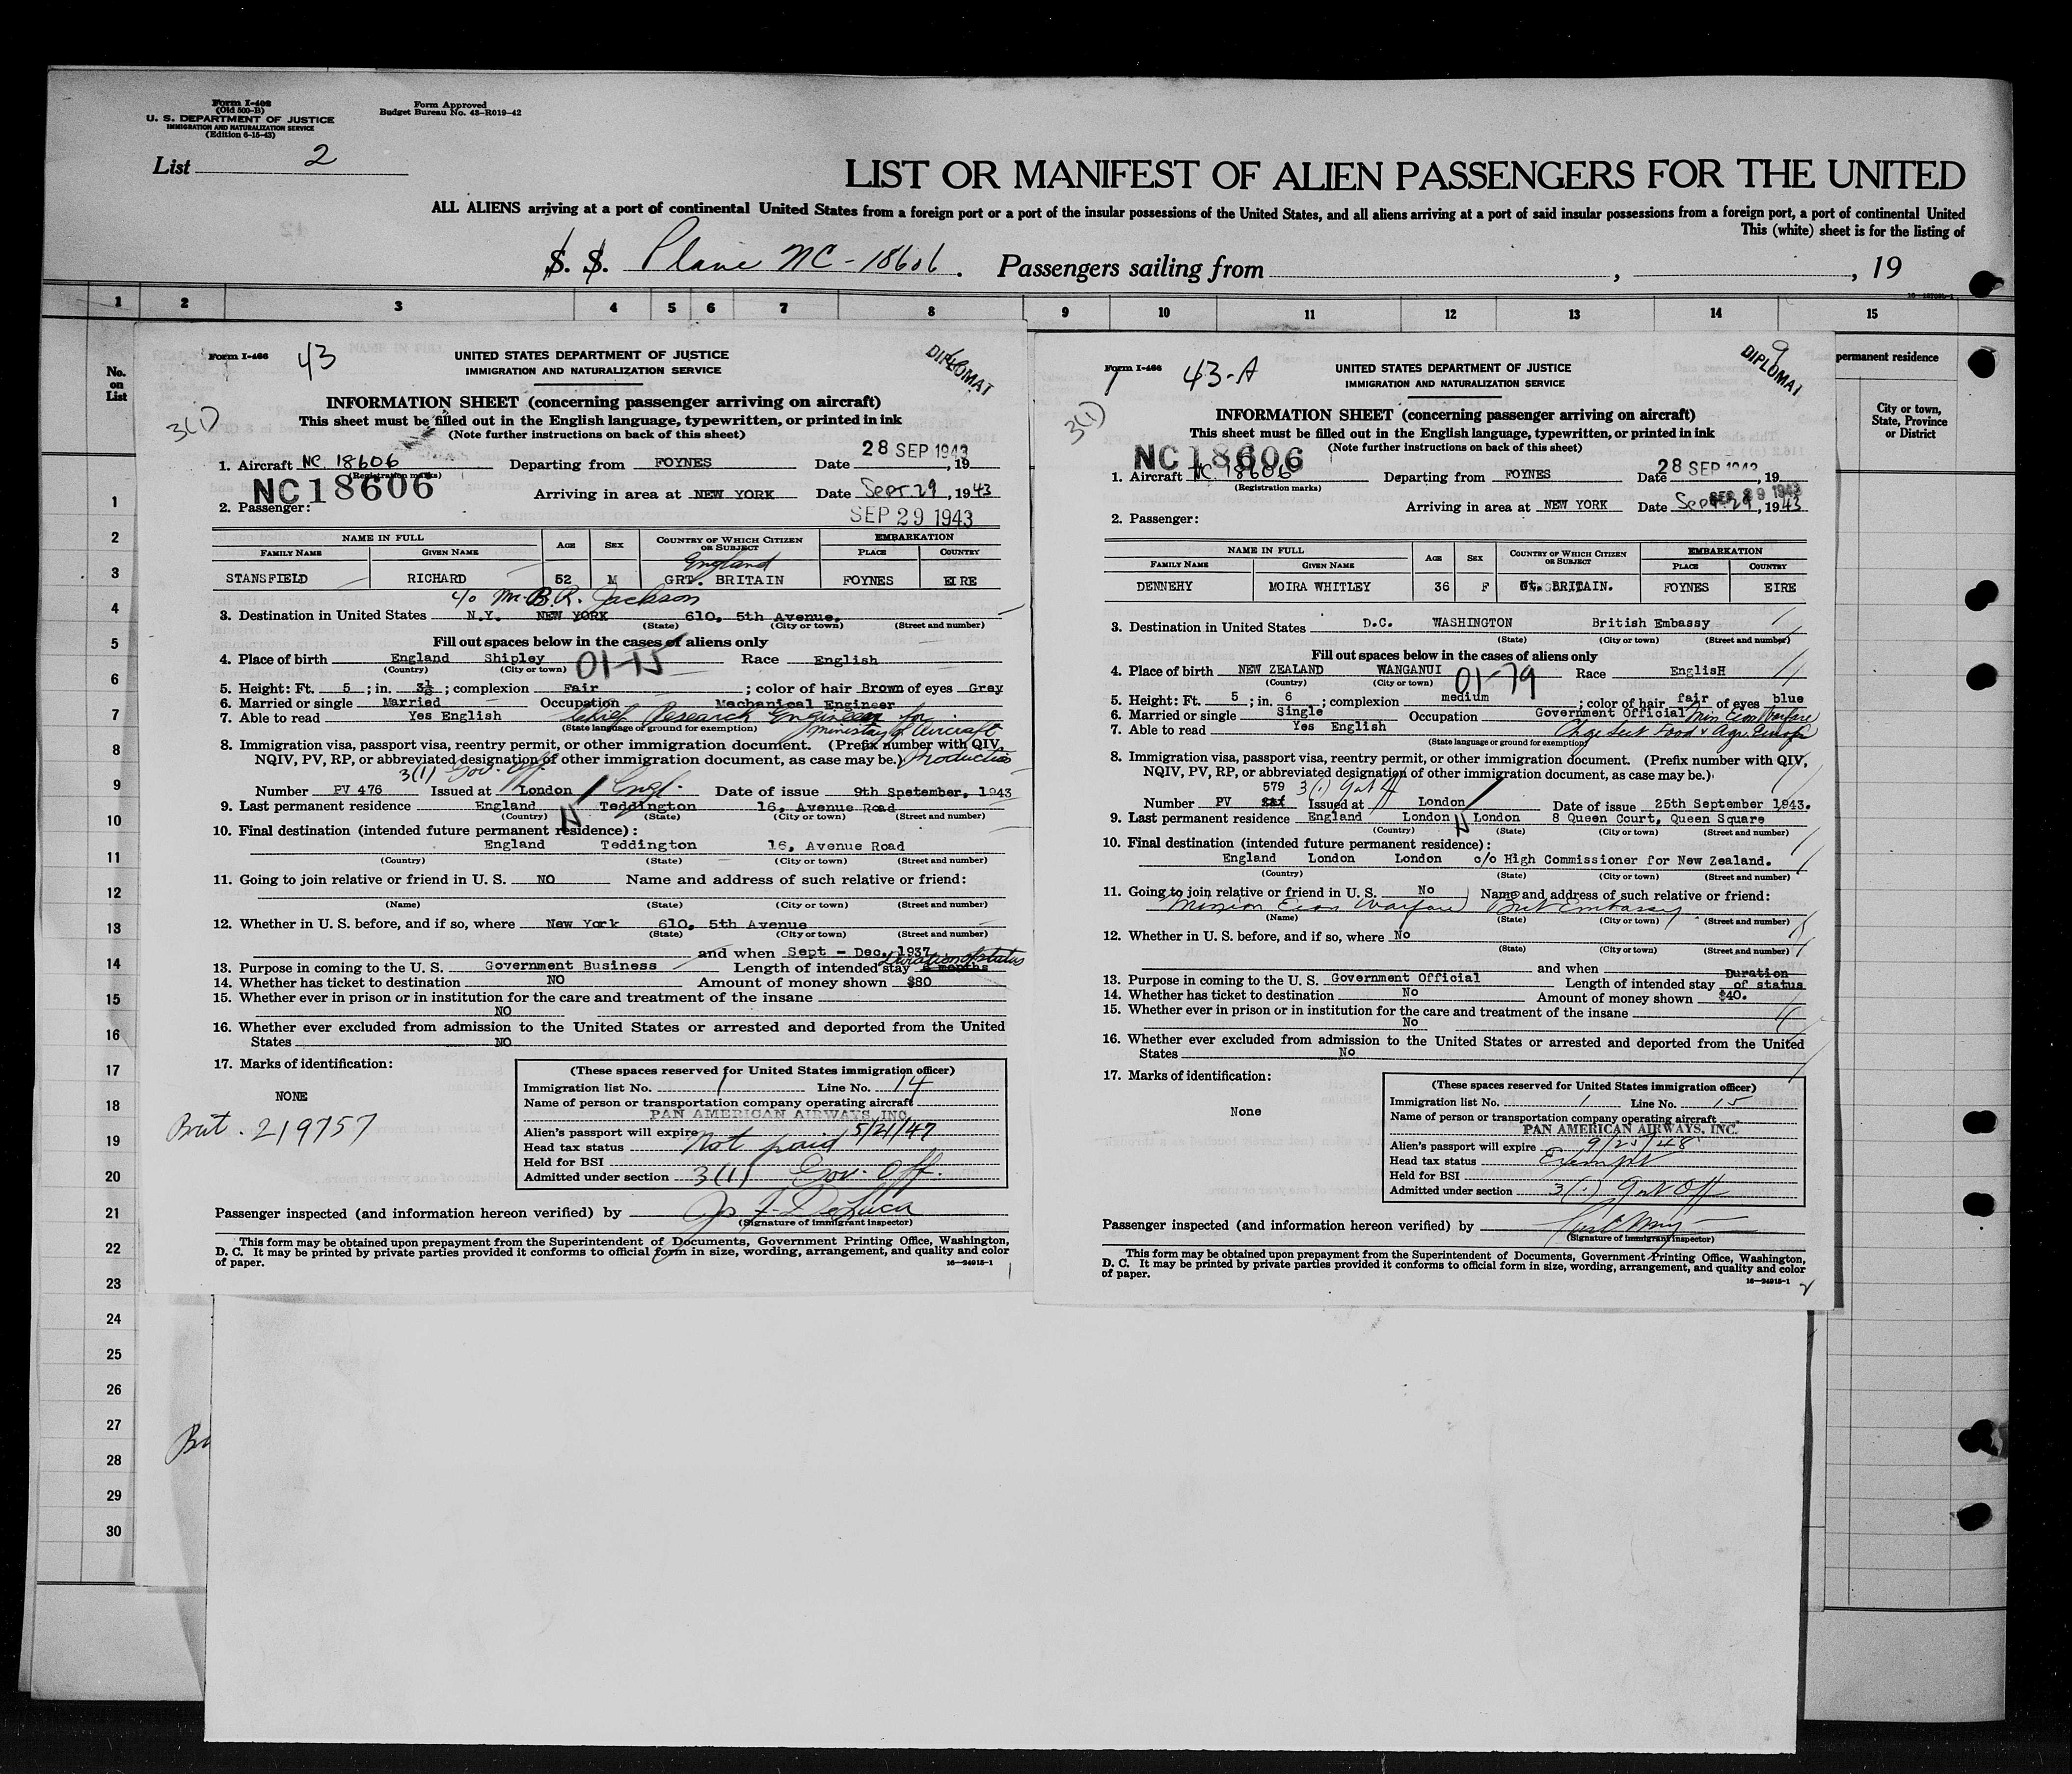 Form I-408
(Old 500-B)
U. S. DEPARTMENT OF JUSTICE
IMMIGRATION AND NATURALIZATION SERVICE
(Edition 6-15-43)
Form Approved
Budget Bureau No. 43-R019-42
List 2
LIST OR MANIFEST OF ALIEN PASSENGERS FOR THE UNITED
ALL ALIENS arriving at a port of continental United States from a foreign port or a port of the insular possessions of the United States, and all aliens arriving at a port of said insular possessions from a foreign port, a port of continental United
This (white) sheet is for the listing of
S. S. Plane NC-18606. Passengers sailing from , , 19
1 2 3 4 5 6 7 8 9 10 11 12 13 14 15
No.
on
List
permanent residence
City or town,
State, Province
or District
1
2
3
4
5
6
7
8
9
10
11
12
13
14
15
16
17
18
19
20
21
22
23
24
25
26
27
28
29
30
Form I-466
43
UNITED STATES DEPARTMENT OF JUSTICE
IMMIGRATION AND NATURALIZATION SERVICE
DIPLOMAT
3(1)
INFORMATION SHEET (concerning passenger arriving on aircraft)
This sheet must be filled out in the English language, typewritten, or printed in ink
(Note further instructions on back of this sheet)
1. Aircraft NC 18606 Departing from FOYNES Date 28 SEP 1943, 19
(Registration marks)
NC18606 Arriving in area at NEW YORK Date Sept 29, 1943
2. Passenger: SEP 29 1943
NAME IN FULL AGE SEX COUNTRY OF WHICH CITIZEN OR SUBJECT EMBARKATION
FAMILY NAME GIVEN NAME PLACE COUNTRY
England
STANSFIELD RICHARD 52 M GRT. BRITAIN FOYNES EIRE
c/o Mr. B.R. Jackson
3. Destination in United States N.Y. NEW YORK 610, 5th Avenue.
(State) (City or town) (Street and number)
Fill out spaces below in the cases of aliens only
4. Place of birth England Shipley 01-15 Race English
(Country) (City or town)
5. Height: Ft. 5 ; in. 3½ ; complexion Fair ; color of hair Brown of eyes Grey
6. Married or single Married Occupation Mechanical Engineer
7. Able to read Yes English Chief Research Engineer for
(State language or ground for exemption) Ministry of Aircraft
8. Immigration visa, passport visa, reentry permit, or other immigration document. (Prefix number with QIV,
NQIV, PV, RP, or abbreviated designation of other immigration document, as case may be.) Production
3(1) Gov. Off.
Number PV 476 Issued at London Engl. Date of issue 9th Spetember, 1943
9. Last permanent residence England Teddington 16, Avenue Road
(Country) (State) (City or town) (Street and number)
10. Final destination (intended future permanent residence):
England Teddington 16, Avenue Road
(Country) (State) (City or town) (Street and number)
11. Going to join relative or friend in U. S. NO Name and address of such relative or friend:
(Name) (State) (City or town) (Street and number)
12. Whether in U. S. before, and if so, where New York 610, 5th Avenue
(State) (City or town) (Street and number)
and when Sept - Dec, 1937
Duration of status
13. Purpose in coming to the U. S. Government Business Length of intended stay months
14. Whether has ticket to destination NO Amount of money shown $80
15. Whether ever in prison or in institution for the care and treatment of the insane
NO
16. Whether ever excluded from admission to the United States or arrested and deported from the United
States NO
17. Marks of identification:
NONE
Brit. 219757
(These spaces reserved for United States immigration officer)
Immigration list No. 1 Line No. 14
Name of person or transportation company operating aircraft
PAN AMERICAN AIRWAYS, INC.
Alien's passport will expire 5/21/47
Head tax status Not paid
Held for BSI
Admitted under section 3(1) Gov. Off.
Passenger inspected (and information hereon verified) by
(Signature of immigrant inspector)
This form may be obtained upon prepayment from the Superintendent of Documents, Government Printing Office, Washington,
D. C. It may be printed by private parties provided it conforms to official form in size, wording, arrangement, and quality and color
of paper. 16—24915-1
Form I-466
43-A
UNITED STATES DEPARTMENT OF JUSTICE
IMMIGRATION AND NATURALIZATION SERVICE
9
DIPLOMAT
3(1)
INFORMATION SHEET (concerning passenger arriving on aircraft)
This sheet must be filled out in the English language, typewritten, or printed in ink
(Note further instructions on back of this sheet)
NC18606
1. Aircraft NC 18606 Departing from FOYNES Date 28 SEP 1943, 19
(Registration marks)
Arriving in area at NEW YORK Date Sept 29, 1943
SEP 29 1943
2. Passenger:
NAME IN FULL AGE SEX COUNTRY OF WHICH CITIZEN OR SUBJECT EMBARKATION
FAMILY NAME GIVEN NAME PLACE COUNTRY
DENNEHY MOIRA WHITLEY 36 F Gt. BRITAIN. FOYNES EIRE
3. Destination in United States D.C. WASHINGTON British Embassy
(State) (City or town) (Street and number)
Fill out spaces below in the cases of aliens only
4. Place of birth NEW ZEALAND WANGANUI 01-79 Race EnglisH
(Country) (City or town)
5. Height: Ft. 5 ; in. 6 ; complexion medium ; color of hair fair of eyes blue
6. Married or single Single Occupation Government Official Min Econ Warfare
7. Able to read Yes English
(State language or ground for exemption)
8. Immigration visa, passport visa, reentry permit, or other immigration document. (Prefix number with QIV,
NQIV, PV, RP, or abbreviated designation of other immigration document, as case may be.)
579
Number PV Issued at London Date of issue 25th September 1943.
9. Last permanent residence England London London 8 Queen Court, Queen Square
(Country) (State) (City or town) (Street and number)
10. Final destination (intended future permanent residence):
England London London c/o High Commissioner for New Zealand.
(Country) (State) (City or town) (Street and number)
11. Going to join relative or friend in U. S. No Name and address of such relative or friend:
Mission Econ Warfare Brit Embassy
(Name) (State) (City or town) (Street and number)
12. Whether in U. S. before, and if so, where No
(State) (City or town) (Street and number)
and when
13. Purpose in coming to the U. S. Government Official Length of intended stay Duration of status
14. Whether has ticket to destination No Amount of money shown $40.
15. Whether ever in prison or in institution for the care and treatment of the insane
No
16. Whether ever excluded from admission to the United States or arrested and deported from the United
States No
17. Marks of identification:
None
(These spaces reserved for United States immigration officer)
Immigration list No. 1 Line No. 15
Name of person or transportation company operating aircraft
PAN AMERICAN AIRWAYS, INC.
Alien's passport will expire
Head tax status Exempt
Held for BSI
Admitted under section 3(1) Gov Off
Passenger inspected (and information hereon verified) by
(Signature of immigrant inspector)
This form may be obtained upon prepayment from the Superintendent of Documents, Government Printing Office, Washington,
D. C. It may be printed by private parties provided it conforms to official form in size, wording, arrangement, and quality and color
of paper. 16—24915-1